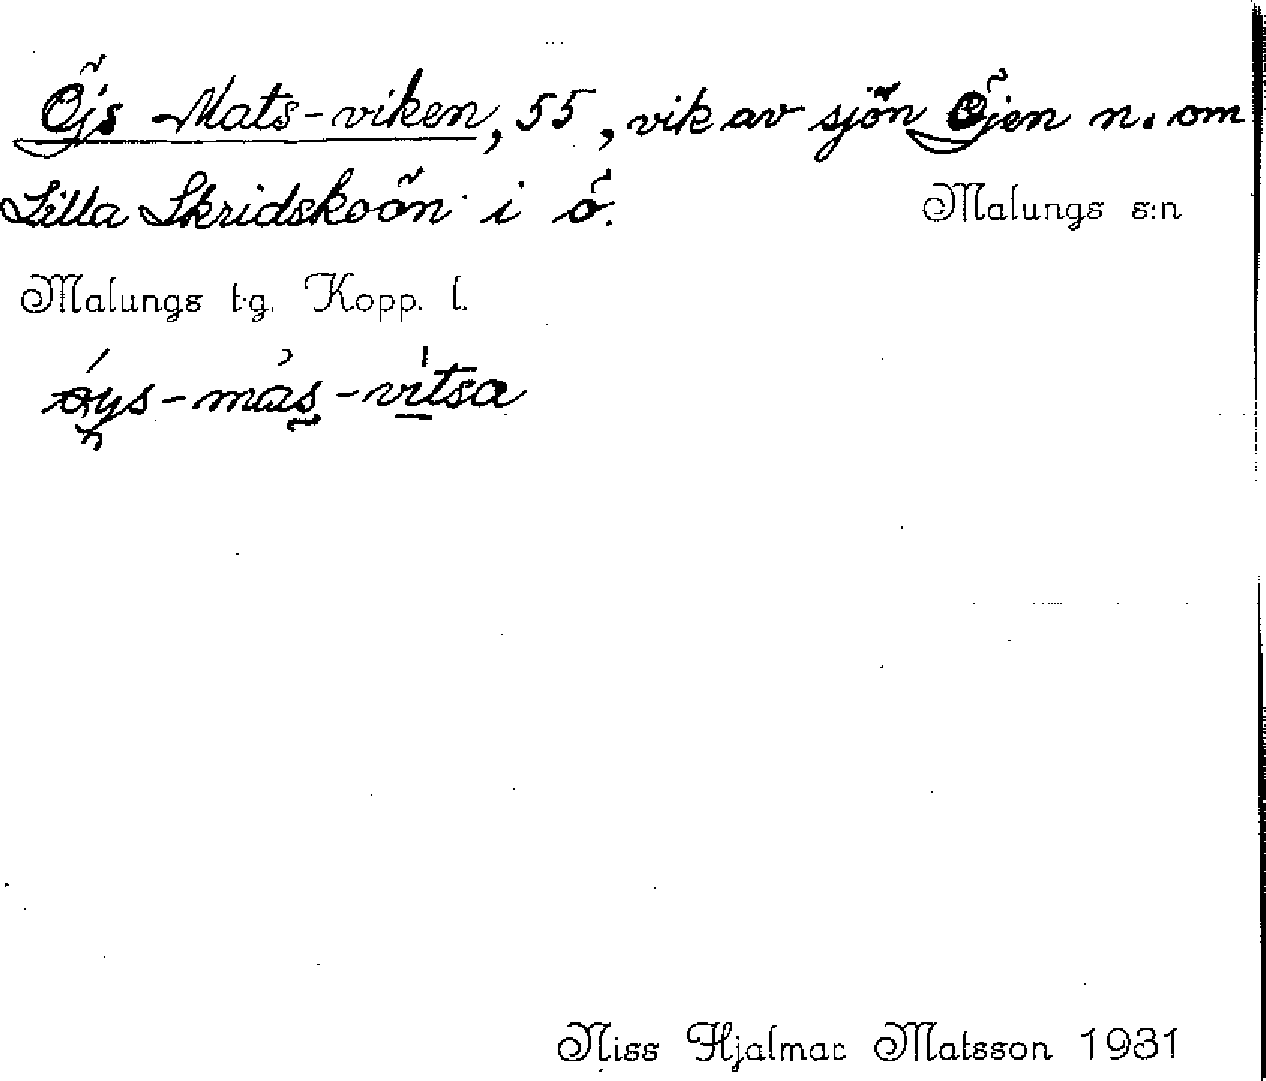 Öjs Mats-viken, 55, vik av sjön Öjen n. om
Lilla Skridskoön i ö. Malungs s:n
Malungs tg. Kopp. l.
öys-màs-vitsa
Niss Hjalmar Matsson 1931